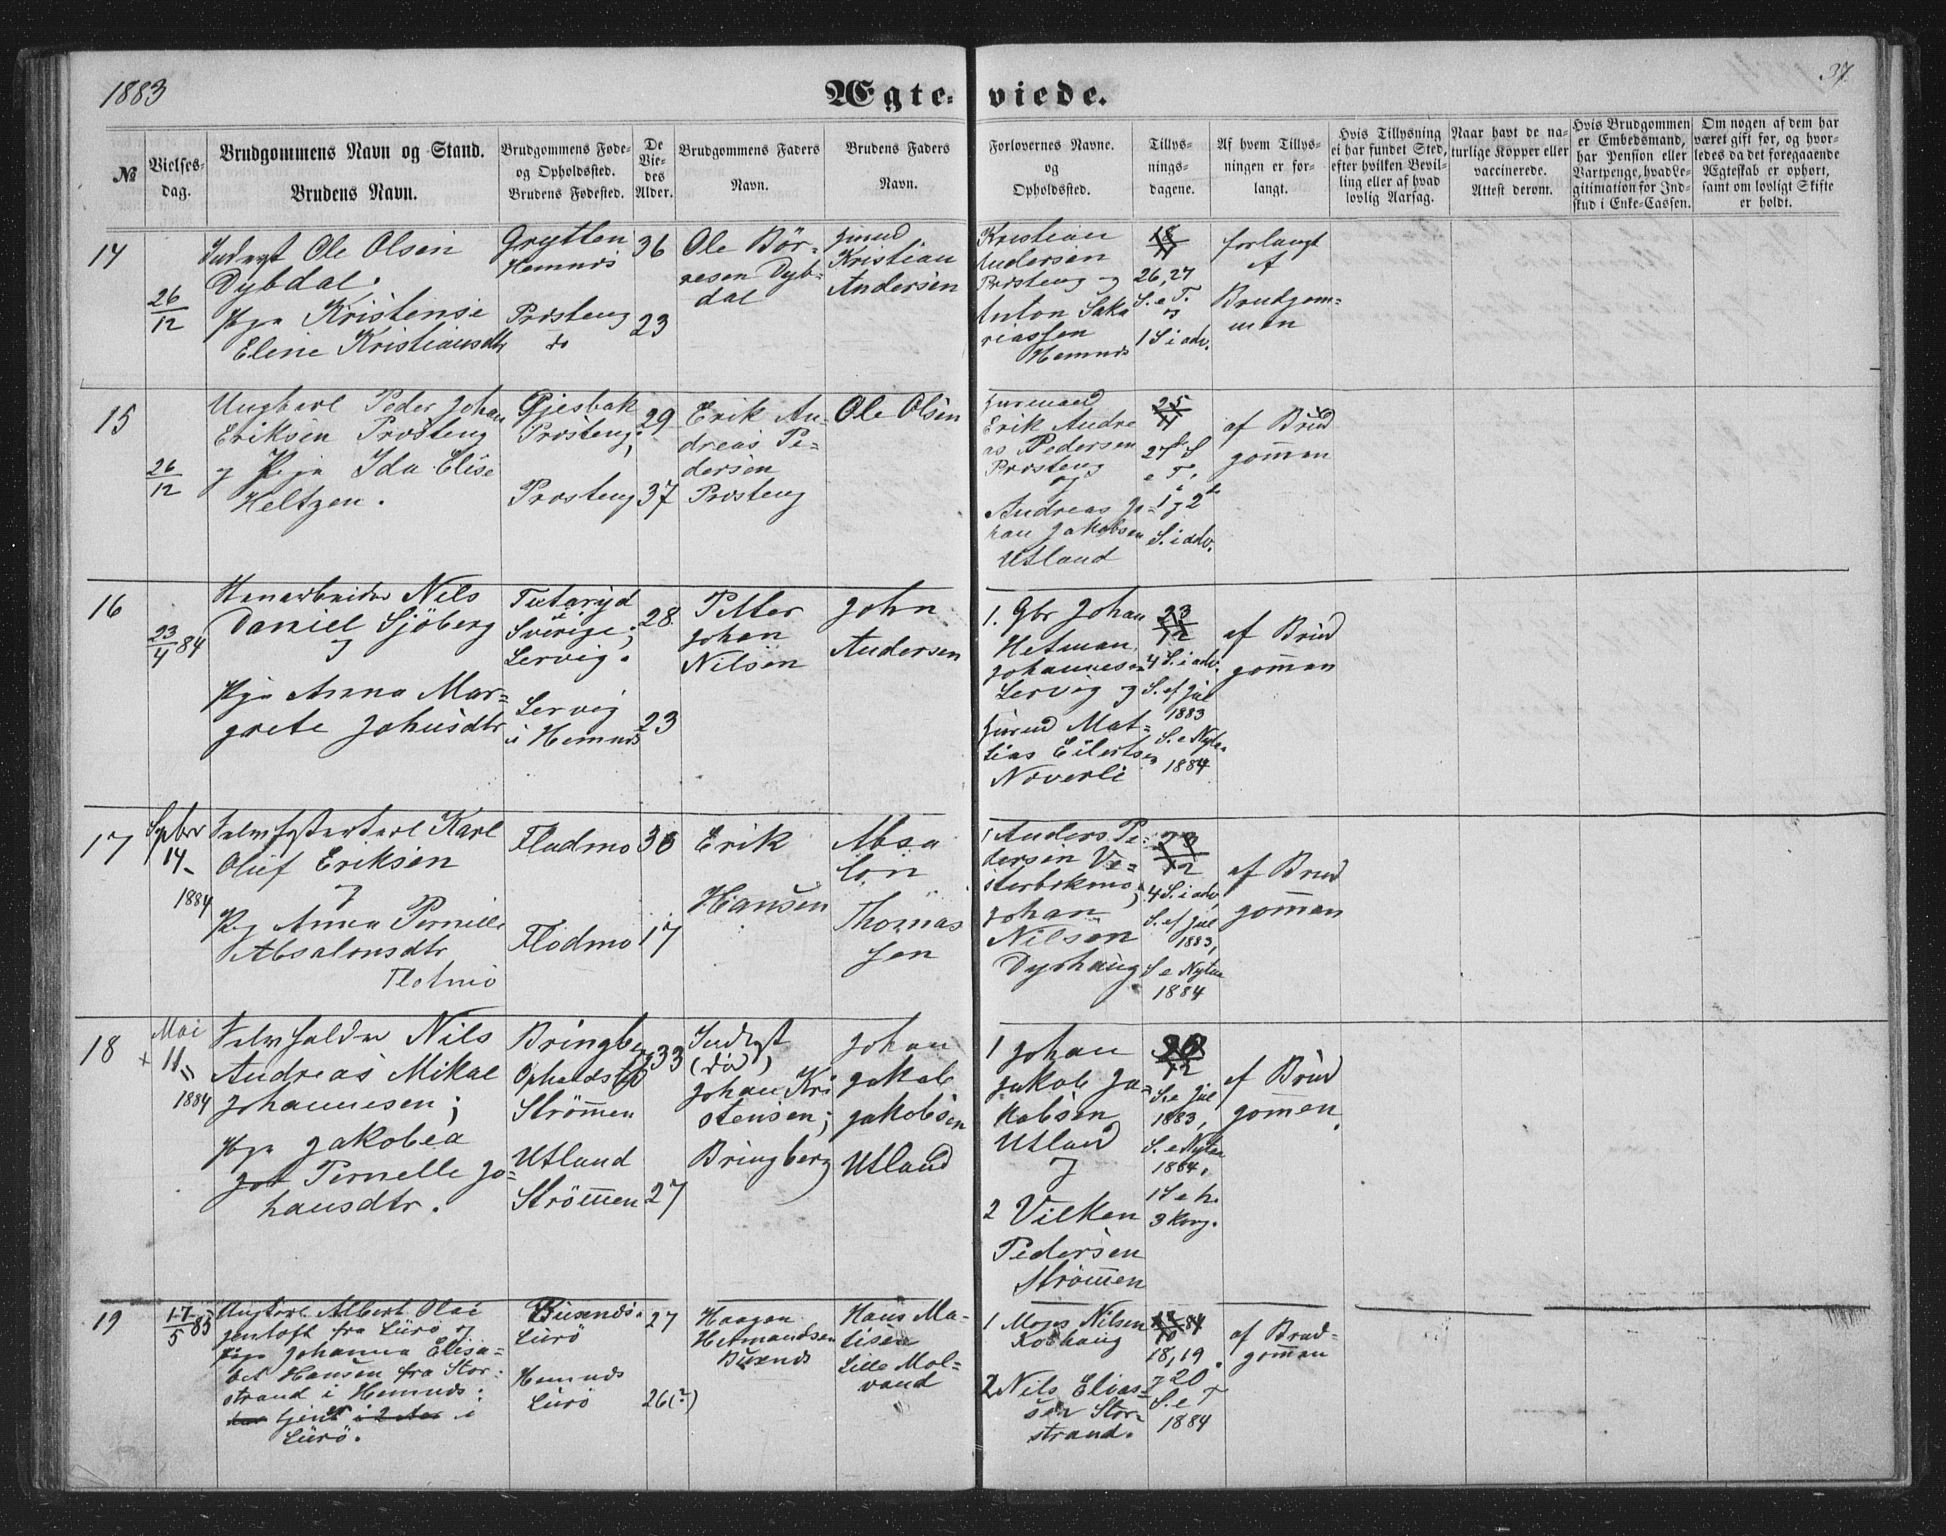 1883
Ægte- viede.
37.
№
Vielses-
dag.
Brudgommens Navn og Stand.
Brudens Navn.
Brudgommens Føde-
og Opholdssted.
Brudens Fødested.
De
Vie-
des
Alder.
Brudgommens Faders
Navn.
Brudens Faders
Navn.
Forlovernes Navne.
og
Opholdssted.
Tillys-
nings-
dagene.
Af hvem Tillys-
ningen er for-
langt.
Hvis Tillysning
ei har fundet Sted,
efter hvilken Bevil-
ling eller af hvad
lovlig Aarsag.
Naar havt de na-
turlige Kopper eller
vaccinerede.
Attest derom.
Hvis Brudgommen
er Embedsmand,
har Pension eller
Vartpenge, hvad Le-
gitimation for Ind-
skud i Enke-Cassen.
Om nogen af dem har
været gift før, og hvor-
ledes da det foregaaende
Ægteskab er ophørt,
samt om lovligt Skifte
er holdt.
14
26/12
Inderst Ole Olsen
Dybdal.
Pige Kristensi
Eline Kristiansdtr
Grytten
Hemnæs
Prosteng
do
36
23
Ole Bør-
resen Dyb-
dal
Kristian
Andersen
Kristian
Andersen
Prosteng og
Anton Saka
riassen
Hemnæs
18/11
26, 27
S. e T.
og
1 S i adv.
forlangt
af
Brudgom-
men
15
26/12
Ungkarl Peder Johan
Eriksen Prosteng
og Pige Ida Elise
Heltzen.
Gjesbak
Prosteng,
Prosteng
29
37
Erik An-
dreas Pe-
dersen
Prosteng
Ole Olsen
Erik Andre
as Pedersen
Prosteng
og
Andreas Jo-
han Jakobsen
Utland
25/11
27de S
e T.
1 og 2de
S. i adv.
af Brud
gommen
16
23/4 84
Nils
Daniel Sjöberg
og
Pige Anna Mar-
grete Johnsdtr
Tutaryd
i Sverige;
Lervig.
Lervig
i Hemnæs
28
23
Petter
Johan
Nilsen
John
Andersen
1. Gbr Johan
Hetman
Johannesen
Lervig og
Mat-
tias Eilertsen
Noverli
23/12
4 S. i adv.
S. ef Jul
1883
S. e Nytaar
1884
af Brud
gommen
17
Septbr
14
1884
Karl
Oluf Eriksen
og
Pig Anna Pernille
Absalonsdtr
Flotmo
Fladmo
Flodmo
36
17
Erik
Hansen
Absa
lon
Thomas
sen
1 Anders Pe-
dersen Ve-
sterbekmo,
Johan
Nilsen
Dyrhaug
23/12
4 S. i adv,
S. ef Jul
1883,
S e Nytaar
1884
af Brud
gommen
18
Mai
11
1884
Nils
Andreas Mikal
Johannesen;
Pige Jakobea
Pernelle Jo-
hansdtr.
Bringberg
Opholdsted
Strömmen
Utland
Strömmen
33
27
Inderst
(død)
Johan Kri
stensen;
Bringberg
Johan
Jakob
Jakobsen
Utland
1 Johan
Jakob Ja-
kobsen
Utland
og
2 Vilken
Pedersen
Strömmen
30/12
S. e Jul
1883,
S. e Nytaar
1884.
1 S e h.
3 Kong.
af Brud
gommen.
19
17/5 85
Ungkarl Albert Olai
Jentoft fra Lurö og
Pige Johanna Elisa-
bet Hansen fra Stor-
strand i Hemnæs;
har tjent i 2 Aar i
Lurö.
Busendö.
Lurö
Hemnæs
Lurö
27
26(?)
Haagen
Hermandsen
Hans Ma-
tisen
Lille Mol-
vand
1 Mons Nilsen
Kobhaug
2 Nils Elias-
sen Stor-
strand.
12/10 84
18, 19.
og 20
S. e T
1884
af Brud-
gommen